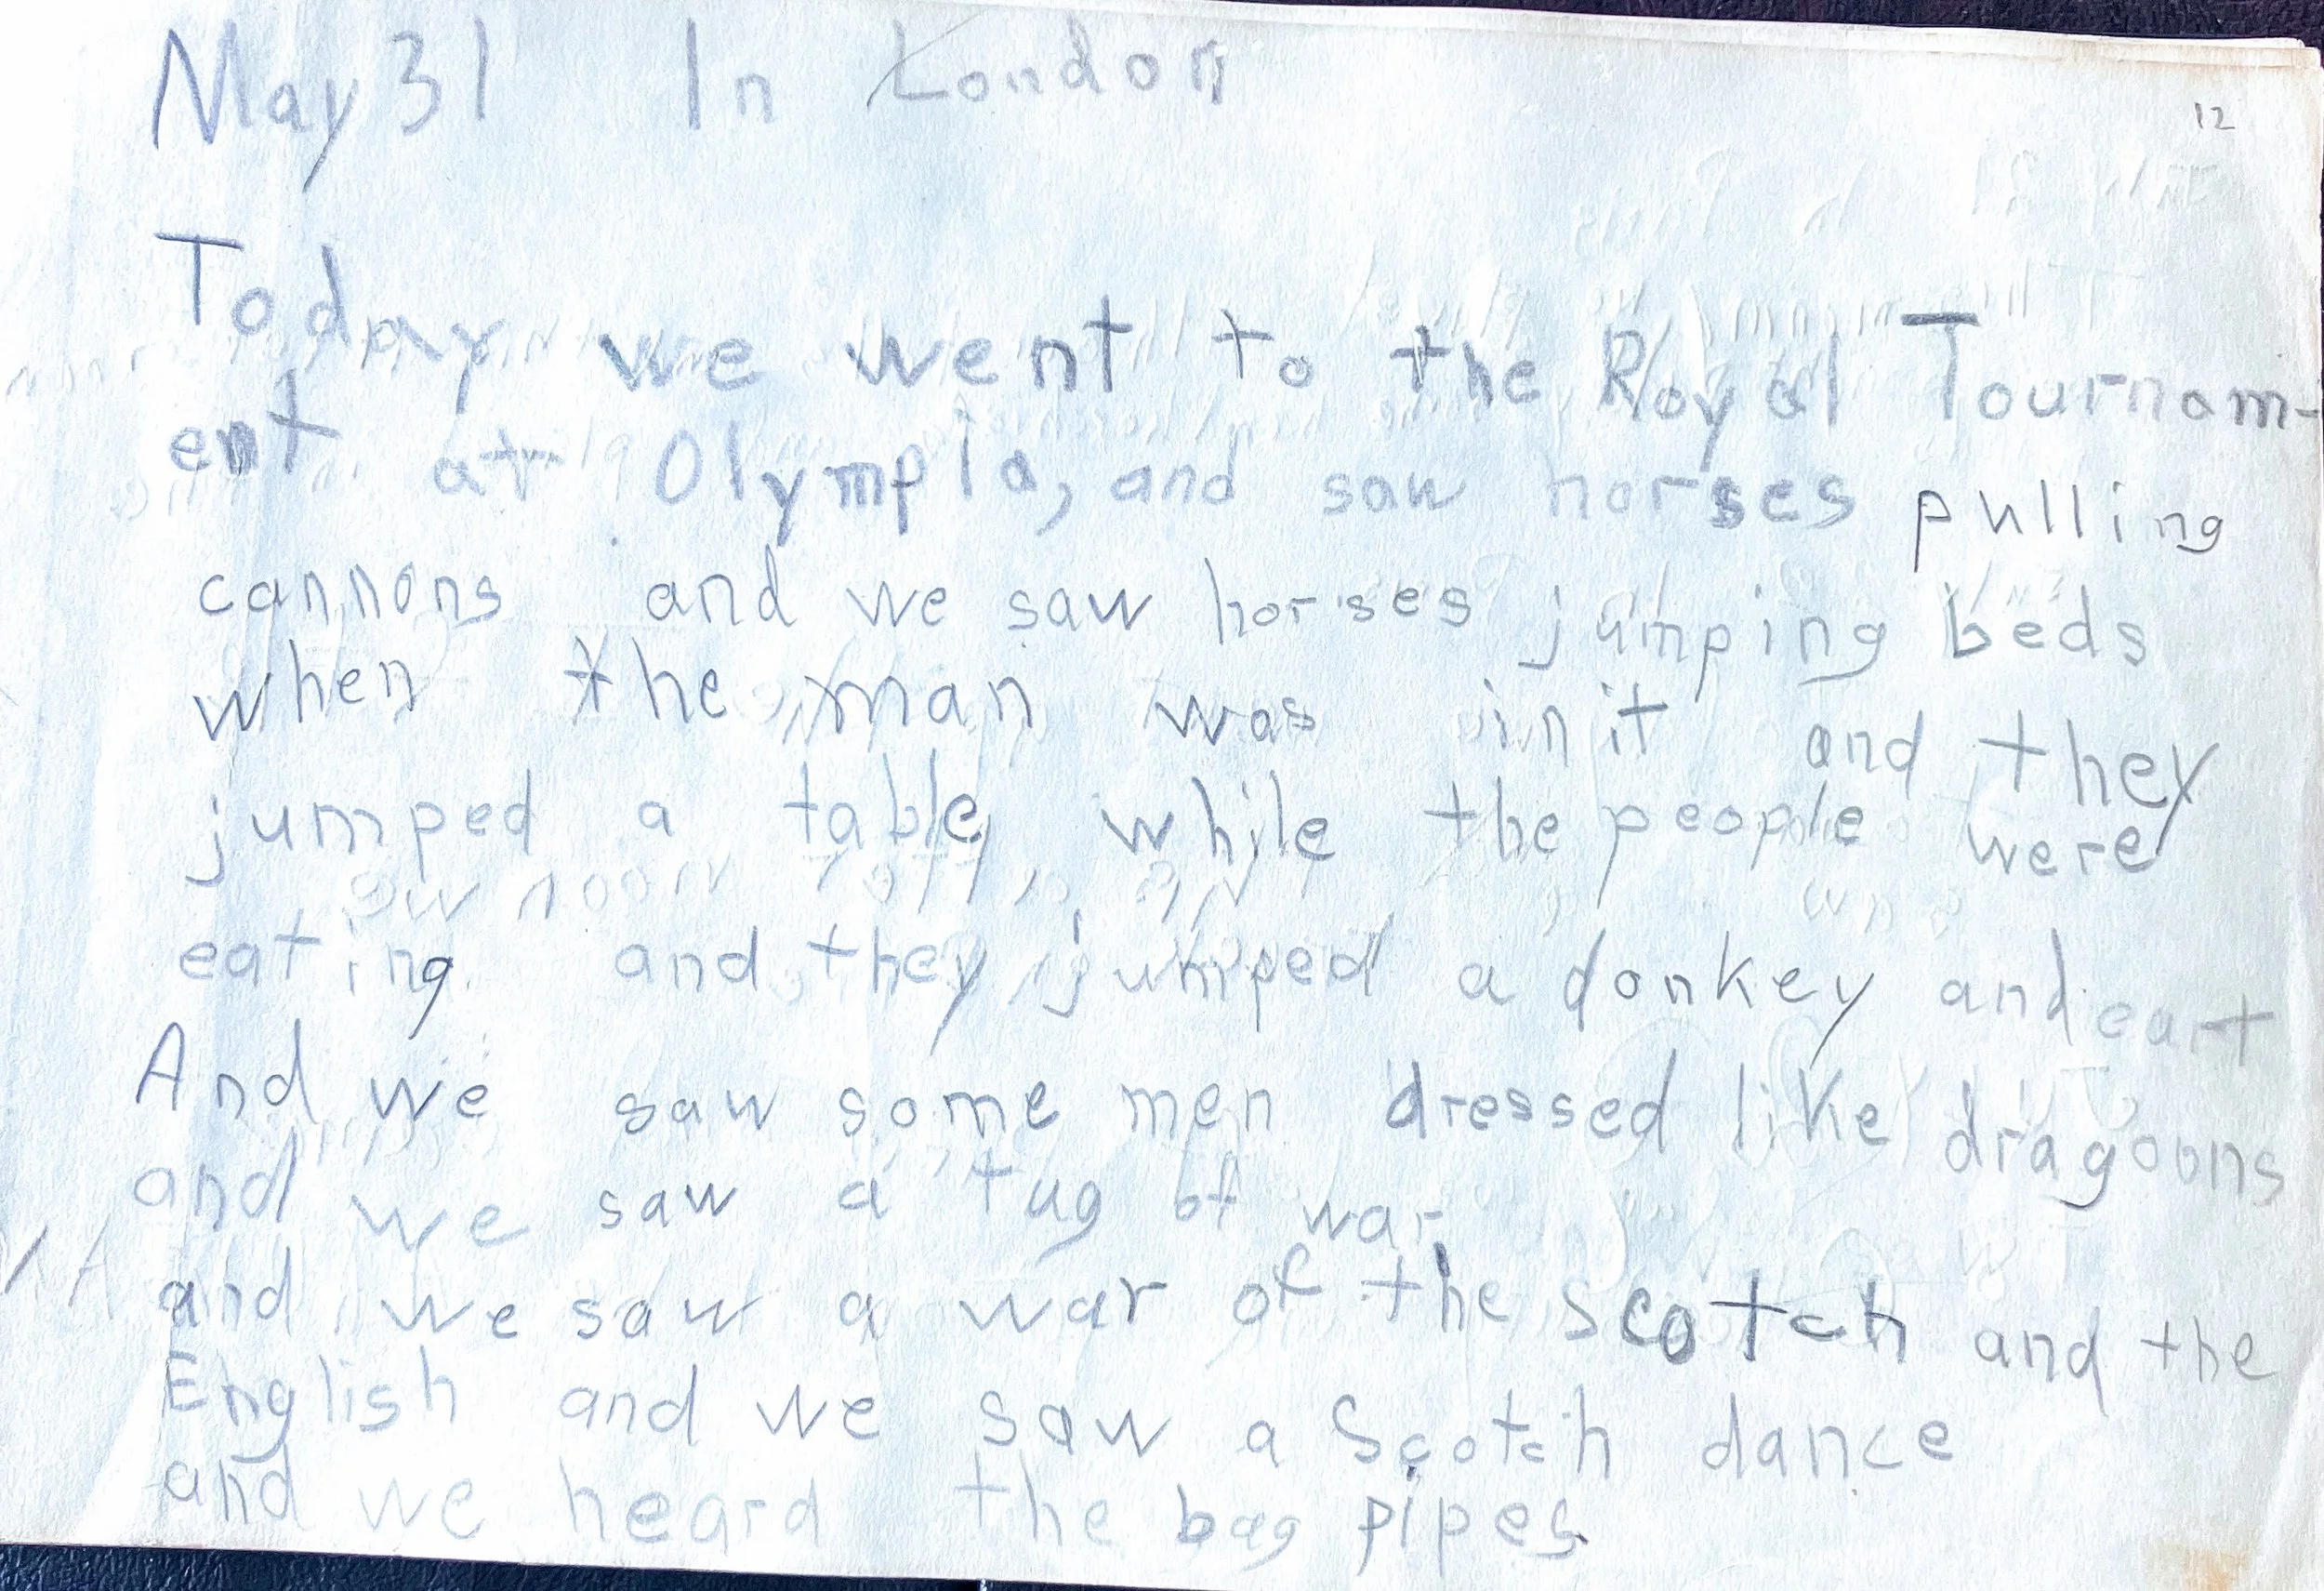 May 31 In London
12
Today we went to the Royal Tournam-
ent at Olympia, and saw horses pulling
cannons and we saw horses jumping beds
when the man was in it and they
jumped a table while the people were
eating and they jumped a donkey and cart
And we saw some men dressed like dragoons
and we saw a tug of war
and we saw a war of the scotch and the
English and we saw a Scotch dance
and we heard the bag pipes